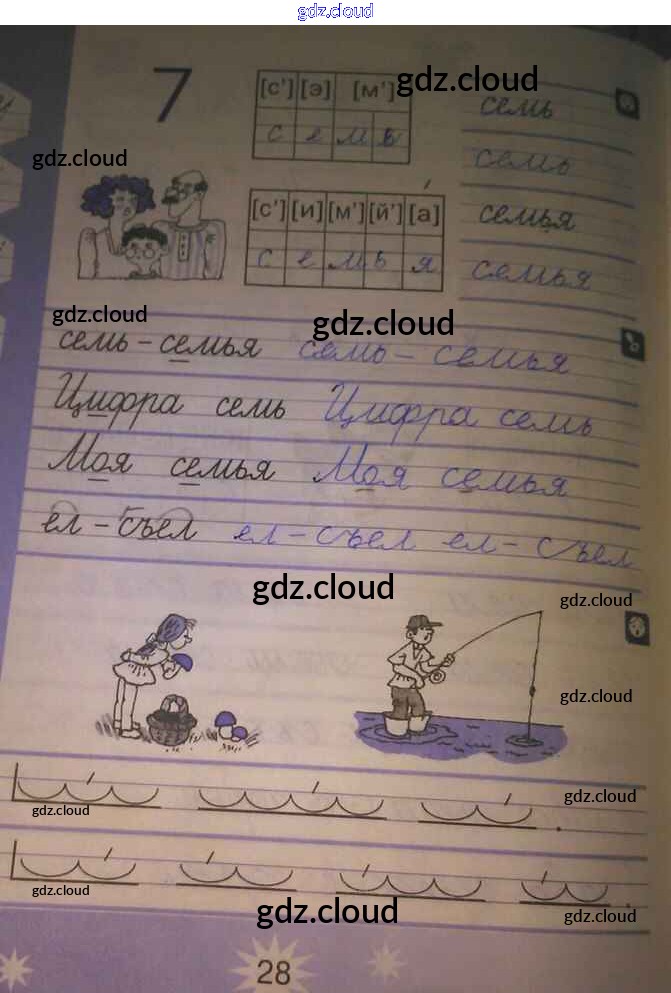 gdz.cloud
7
[с'] [э] [м']
с е м ь
gdz.cloud
семь
семь
gdz.cloud
[с'] [и] [м'] [й'] [а]
с е м ь я
семья
семья
gdz.cloud
gdz.cloud
семь – семья семь – семья
Цифра семь Цифра семь
Моя семья Моя семья
ел – съел ел – съел ел – съел
gdz.cloud
gdz.cloud
gdz.cloud
gdz.cloud
gdz.cloud
gdz.cloud
gdz.cloud
gdz.cloud
28